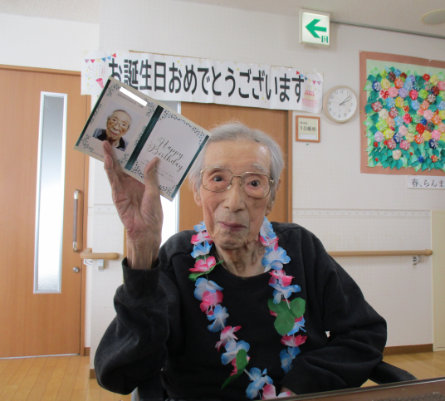 お誕生日おめでとうございます
Happy
Birthday
春、らんま